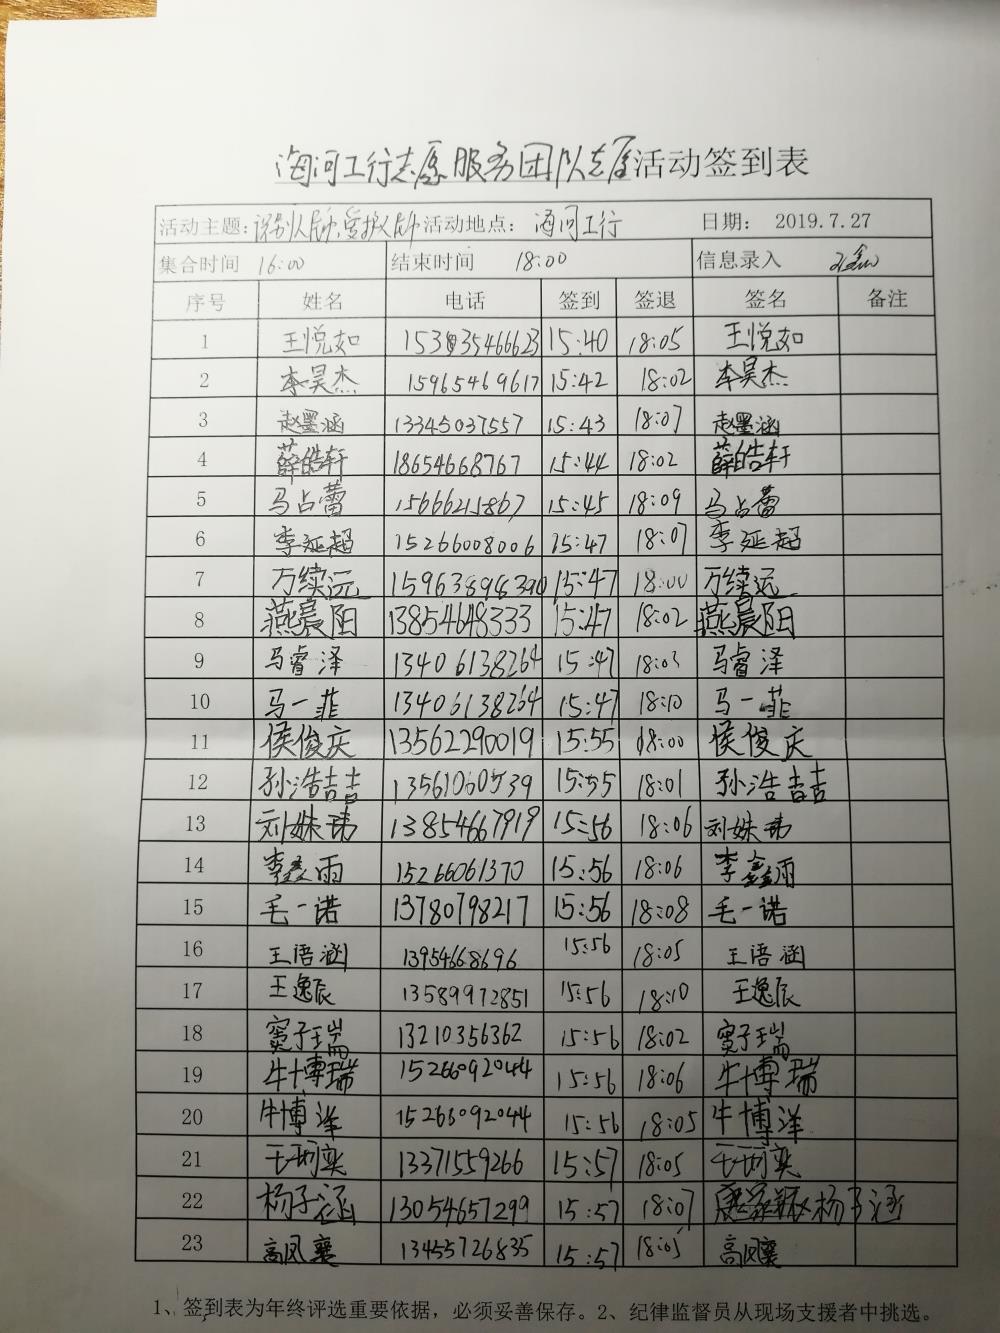 海河工行志愿服务团队志愿活动签到表
活动主题: 识别人民币,爱护人民币 活动地点: 海河工行 日期: 2019.7.27
集合时间 16:00 结束时间 18:00 信息录入
序号 姓名 电话 签到 签退 签名 备注
1 王悦如 15335466623 15:40 18:05 王悦如
2 本昊杰 15965469617 15:42 18:02 本昊杰
3 赵墨涵 13345037557 15:43 18:07 赵墨涵
4 薛皓轩 18654668767 15:44 18:02 薛皓轩
5 马占蕾 15666215867 15:45 18:09 马占蕾
6 李延超 15266008006 15:47 18:07 李延超
7 万续远 15963898390 15:47 18:00 万续远
8 燕晨阳 13854648333 15:47 18:02 燕晨阳
9 马睿泽 13406138264 15:47 18:03 马睿泽
10 马一菲 13406138264 15:47 18:10 马一菲
11 侯俊庆 13562290019 15:55 18:00 侯俊庆
12 孙浩喆 13561060539 15:55 18:01 孙浩喆
13 刘姝玮 13854667919 15:56 18:06 刘姝玮
14 李鑫雨 15266061370 15:56 18:06 李鑫雨
15 毛一诺 13780798217 15:56 18:08 毛一诺
16 王语涵 13954668696 15:56 18:05 王语涵
17 王逸辰 13589972851 15:56 18:10 王逸辰
18 窦子瑞 13210356362 15:56 18:02 窦子瑞
19 牛博瑞 15266092044 15:56 18:06 牛博瑞
20 牛博洋 15266092044 15:56 18:05 牛博洋
21 王珂奕 13371559266 15:57 18:05 王珂奕
22 杨子涵 13054657299 15:57 18:07 杨子涵
23 高凤襄 13455726835 15:57 18:05 高凤襄
1、签到表为年终评选重要依据，必须妥善保存。2、纪律监督员从现场支援者中挑选。